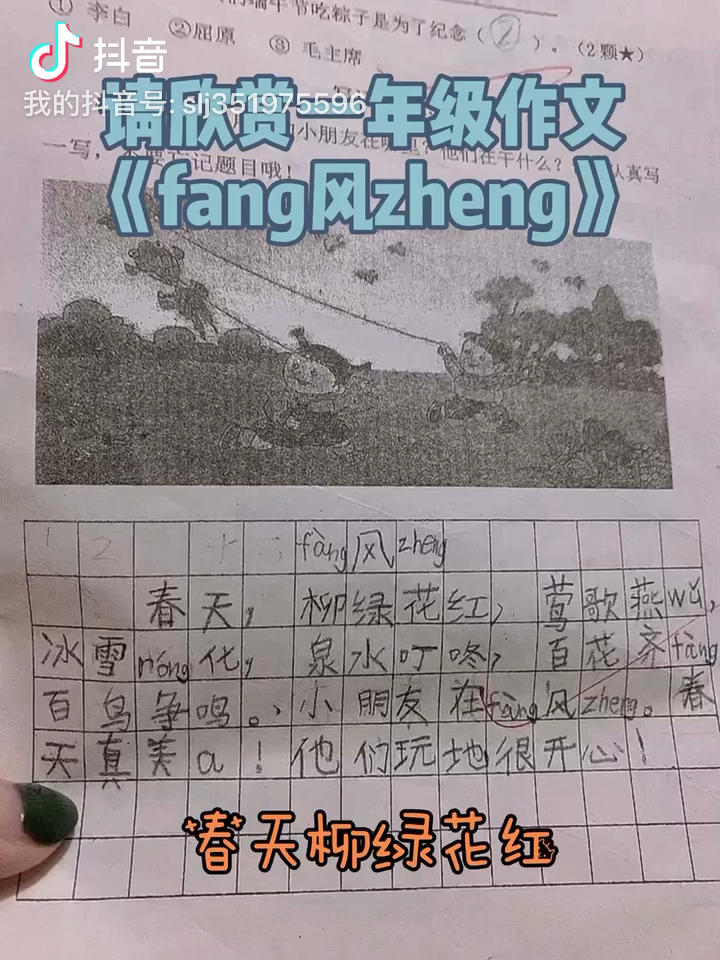 ① 李白 ②屈原 ③ 毛主席
们端午节吃粽子是为了纪念（2）。（2颗★）
抖音
我的抖音号: slj351975596
请欣赏一年级作文
小朋友在哪里？他们在干什么？
认真写
一写，不要忘记题目哦！
《fang风zheng》
fàng风zheng
春天，柳绿花红，莺歌燕wǔ，
冰雪róng化，泉水叮咚，百花齐fàng
百鸟争鸣。、小朋友在fàng风zheng。春
天真美a！他们玩地很开心！
春天柳绿花红